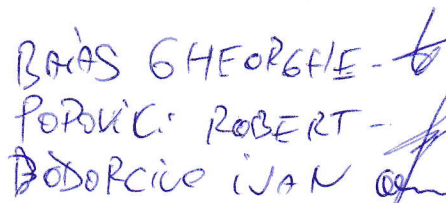 BAIAS GHEORGHE -
POPOVICI ROBERT -
BODORCIUC IVAN